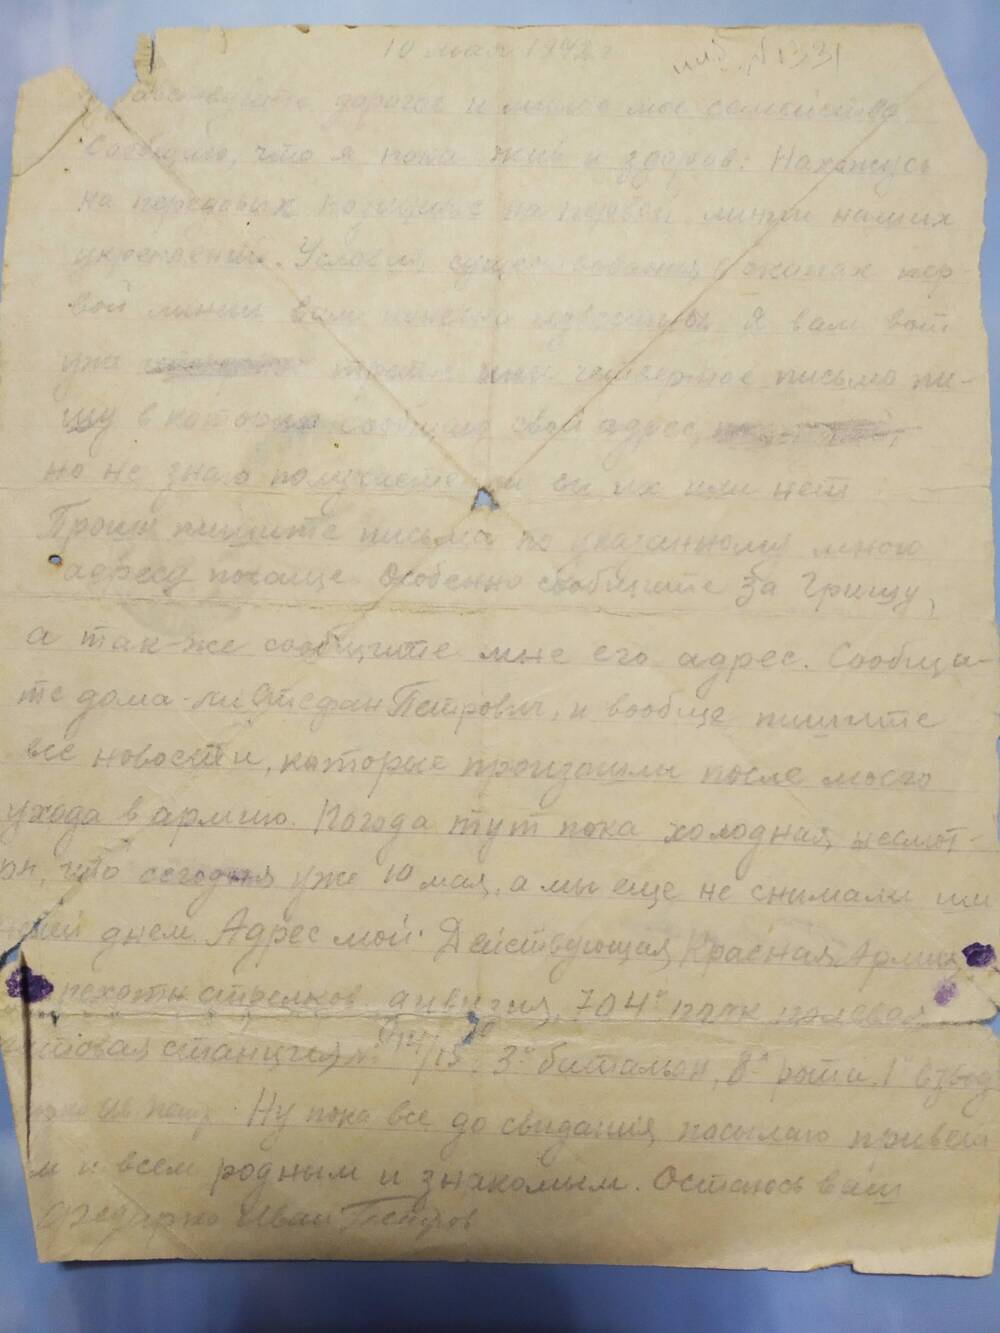 10 мая 1942 г
инв. № 1331
дорогое и милое мое семейство.
Сообщаю, что я пока жив и здоров. Нахожусь
на передовых позициях на первой линии наших
укреплений. Условия существования в окопах пер-
вой линии вам конечно известны. Я вам вот
уже третье или четвертое письмо пи-
шу в которых сообщаю свой адрес,
но не знаю получаете ли вы их или нет
Прошу пишите письма по указанному мною
адресу почаще. Особенно сообщите за Гришу,
а так-же сообщите мне его адрес. Сообщи-
те дома-ли Стефан Петровы, и вообще пишите
все новости, которые произошли после моего
ухода в армию. Погода тут пока холодная, несмот-
ря, что сегодня уже 10 мая, а мы еще не снимали ши
днем. Адрес мой: Действующая Красная Армия
стрелков. дивизия, 704й полк полевая
станция № 3й батальон, 8я рота, 1й взвод
Ну пока все до свидания, посылаю привет
и всем родным и знакомым. Остаюсь ваш
Иван Петров